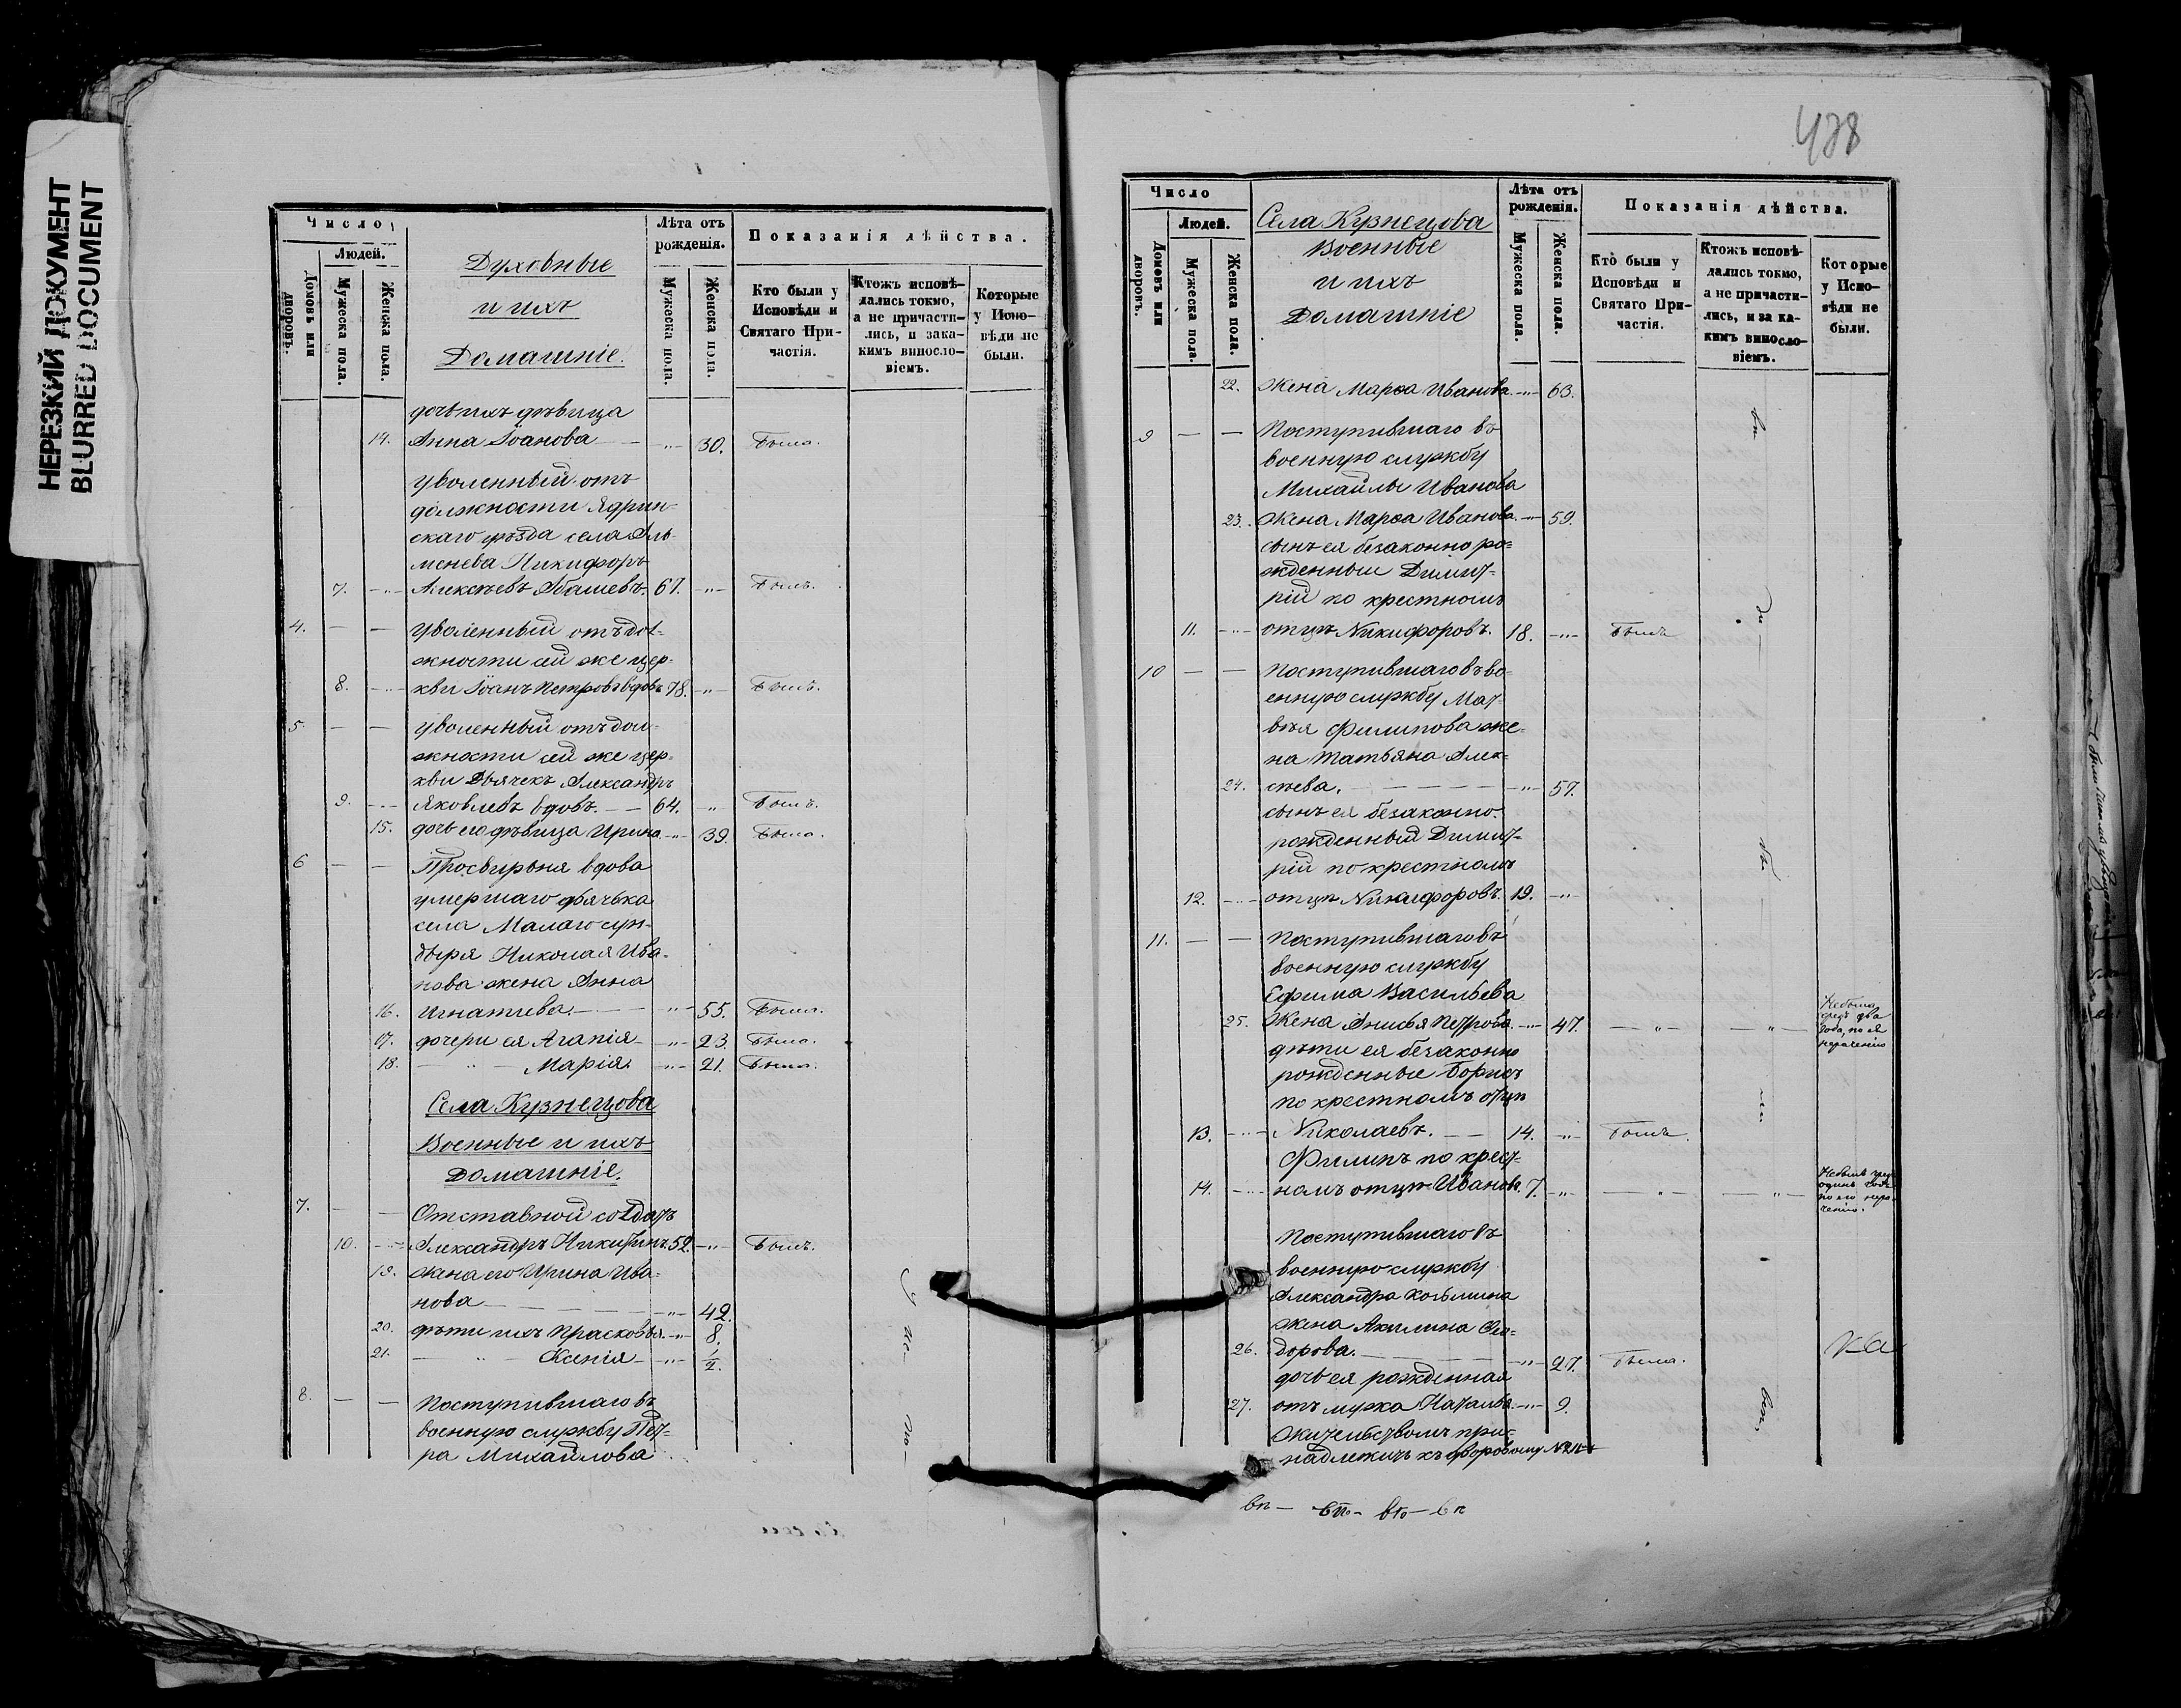 НЕРЕЗКИЙ ДОКУМЕНТ
BLURRED DOCUMENT
Число
Людей.
Домовъ или дворовъ.
Мужеска пола.
Женска пола.
Духовные
и ихъ
Домашніе.
Лѣта отъ рожденія.
Мужеска пола.
Женска пола.
Показанія дѣйства.
Кто были у Исповѣди и Святаго Причастія.
Ктожъ исповѣдались токмо, а не причастились, и закакимъ винословіемъ.
Которые у Исповѣди не были.
дочь ихъ дѣвица
14. Анна Іоанова — -"- 30. Была.
уволенный отъ
должности Ядрин-
скаго уѣзда села Аль-
менева Никифоръ
7. -"- Алексѣевъ Абашевъ. 67. -"- Былъ.
4. — — уволенный отъ дол-
жности сей же цер-
8. -"- кви Іоанъ Петровъ вдовъ 78. -"- Былъ.
5. — — уволенный отъ дол-
жности сей же цер-
кви Дьячекъ Александръ
9. --- Яковлевъ вдовъ. — — 64. -"- Былъ.
15. дочь его дѣвица Ирина. -"- 39. Была.
6 — — Просвирьня вдова
умершаго дьячька
села Малаго сун-
дыря Николая Ива-
нова жена Анна
16. Игнатиева. — -"- 55. Была.
17. дочери ея Агапія -"- 23. Была.
18. — " — Марія. -"- 21. Была.
Села Кузнецова
Военные и ихъ
Домашніе.
7. — — Отставной солдатъ
10. -"- Александръ Никитинъ. 52. -"- Былъ.
19. жена его Ирина Ива-
нова — — — -"- 42.
20. дѣти ихъ Прасковья. -"- 8.
21. — " — Ксенія — -"- 1/2.
8. — — Поступившаго въ
военную службу Пет-
ра Михайлова
428
Число
Людей.
Домовъ или дворовъ.
Мужеска пола.
Женска пола.
Села Кузнецова
Военные
и ихъ
Домашніе
Лѣта отъ рожденія.
Мужеска пола.
Женска пола.
Показанія дѣйства.
Кто были у Исповѣди и Святаго Причастія.
Ктожъ исповѣдались токмо, а не причастились, и за какимъ винословіемъ.
Которые у Исповѣди не были.
22. Жена Марѳа Иванова. -"- 63.
9 — — Поступившаго въ
военную службу
Михайлы Иванова
23. Жена Марѳа Иванова. -"- 59.
сынъ ея безаконно ро-
жденный Димит-
рій по крестномъ
11. -"- отцѣ Никифоровъ. 18. -"- Былъ
10 — — Поступившаго въ во-
енную службу Мат-
вѣя Филипова же-
на Татьяна Алек-
24. сѣева. — — — -"- 57.
сынъ ея безаконно-
рожденный Димит-
рій по крестномъ
12. -"- отцѣ Никифоровъ. 19. -"-
11. — — Поступившаго въ
военную службу
Ефима Васильева
25. Жена Анисья Петрова. -"- 47. — " — — " — Небыла
два
года, по ея
нераченію
дѣти ея безаконно
рожденные Борисъ
по крестномъ отцѣ
13. -"- Николаевъ. — — 14. -"- Былъ.
Филипъ по крест-
14. -"- номъ отцѣ Ивановъ. 7. -"- — " — — " — Небылъ
одинъ годъ
по его нера-
ченію.
Поступившаго въ
военную службу
Александра Козьмина
жена Акилина Ѳео-
26. дорова. — — — -"- 27. Была.
дочь ея рожденная
27. отъ мужа Наталья. -"- 9.
Жительствомъ при-
надлежитъ къ дворовому №